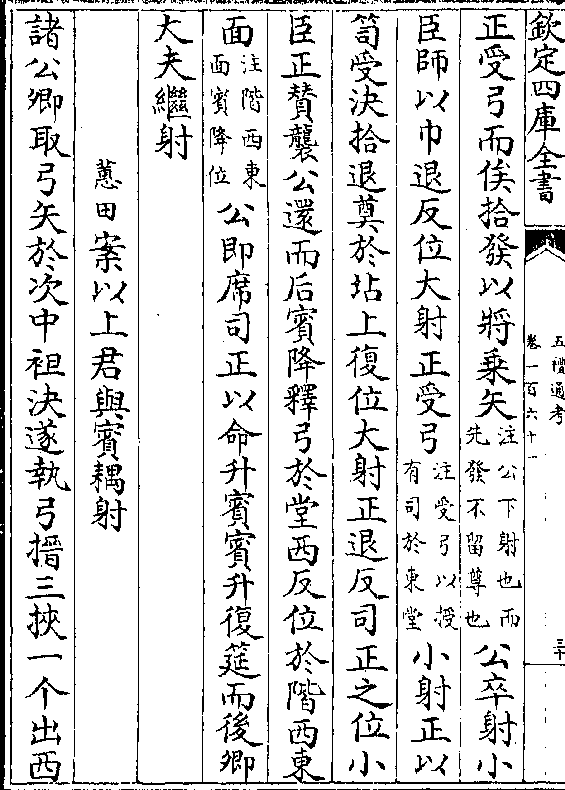 欽定四庫全書
五禮通考
卷一百六十一
三十
正受弓而俟拾發以將乗矢注公下射也而先發不留尊也公卒射小
臣師以巾退反位大射正受弓注受弓以授有司於東堂小射正以
笴受決拾退奠於坫上復位大射正退反司正之位小
臣正賛襲公還而后賓降釋弓於堂西反位於階西東
面注階西東面賓降位公即席司正以命升賓賓升復筵而後卿
大夫繼射
蕙田案以上君與賓耦射
諸公卿取弓矢於次中袒決遂執弓搢三挾一个出西